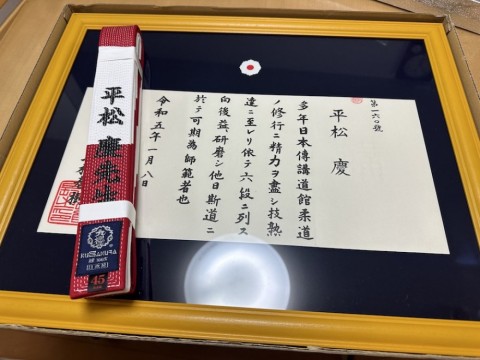 第一六〇號
平松 慶
多年日本傳講道館柔道
ノ修行ニ精力ヲ盡シ技熟
達ニ至レリ依テ六段ニ列ス
向後益〻研磨シ他日斯道ニ
於テ可期為師範者也
令和五年一月八日
平松 慶
KUSAKURA
45